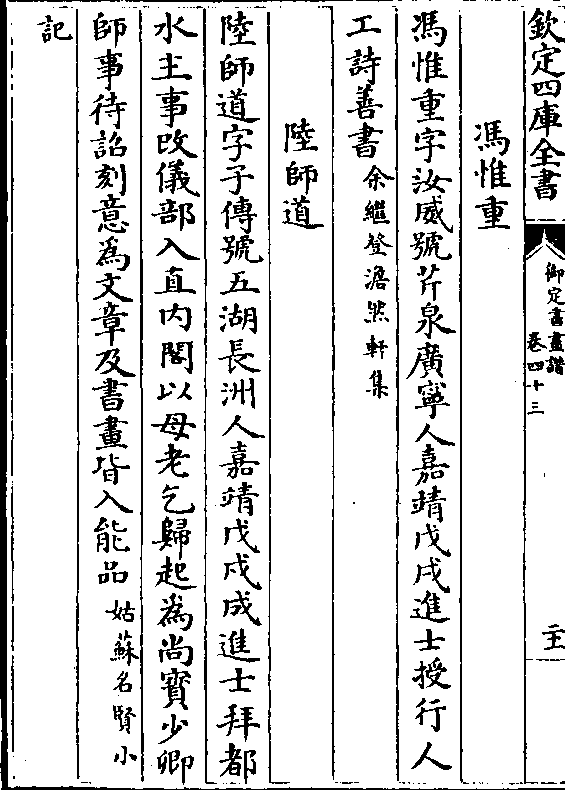 欽定四庫全書
御定書畫譜
卷四十三
馮惟重
馮惟重字汝威號芹泉廣寧人嘉靖戊戌進士授行人
工詩善書 余繼登澹然軒集
陸師道
陸師道字子傳號五湖長洲人嘉靖戊戌成進士拜都
水主事改儀部入直内閣以母老乞歸起為尚寶少卿
師事待詔刻意為文章及書畫皆入能品 姑蘇名賢小
記